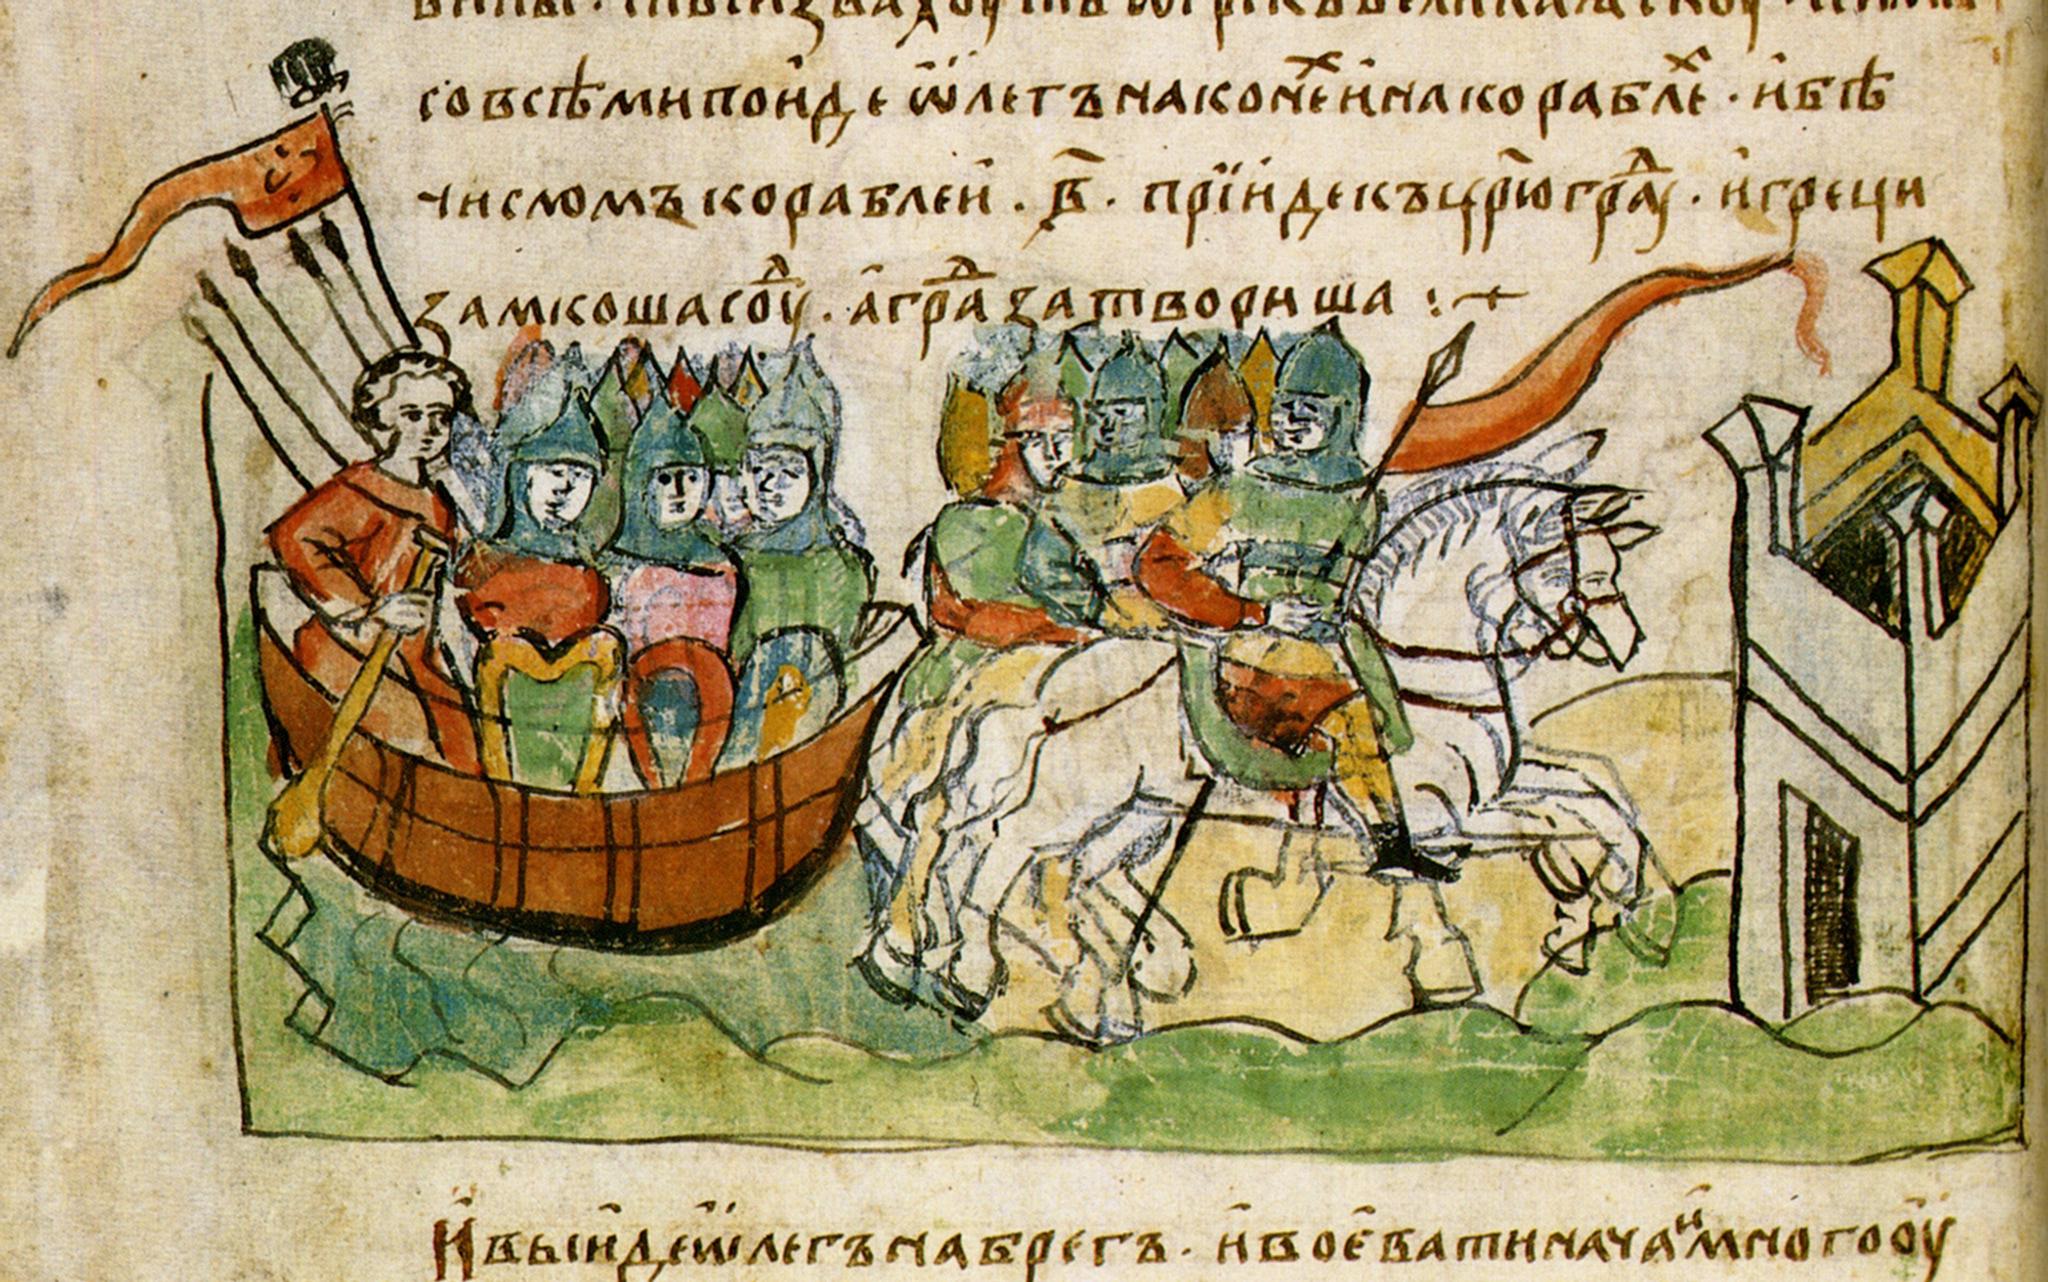 со всѣми поиде ѡлегъ на конех и на кораблех · и бѣ
числомъ кораблеи · в҃ · прїиде къ цр҃юград҇у · и греци
замкоша соуд · а град затвориша :~
И выиде ѡлегъ на брегъ · и воевати нача и много оу